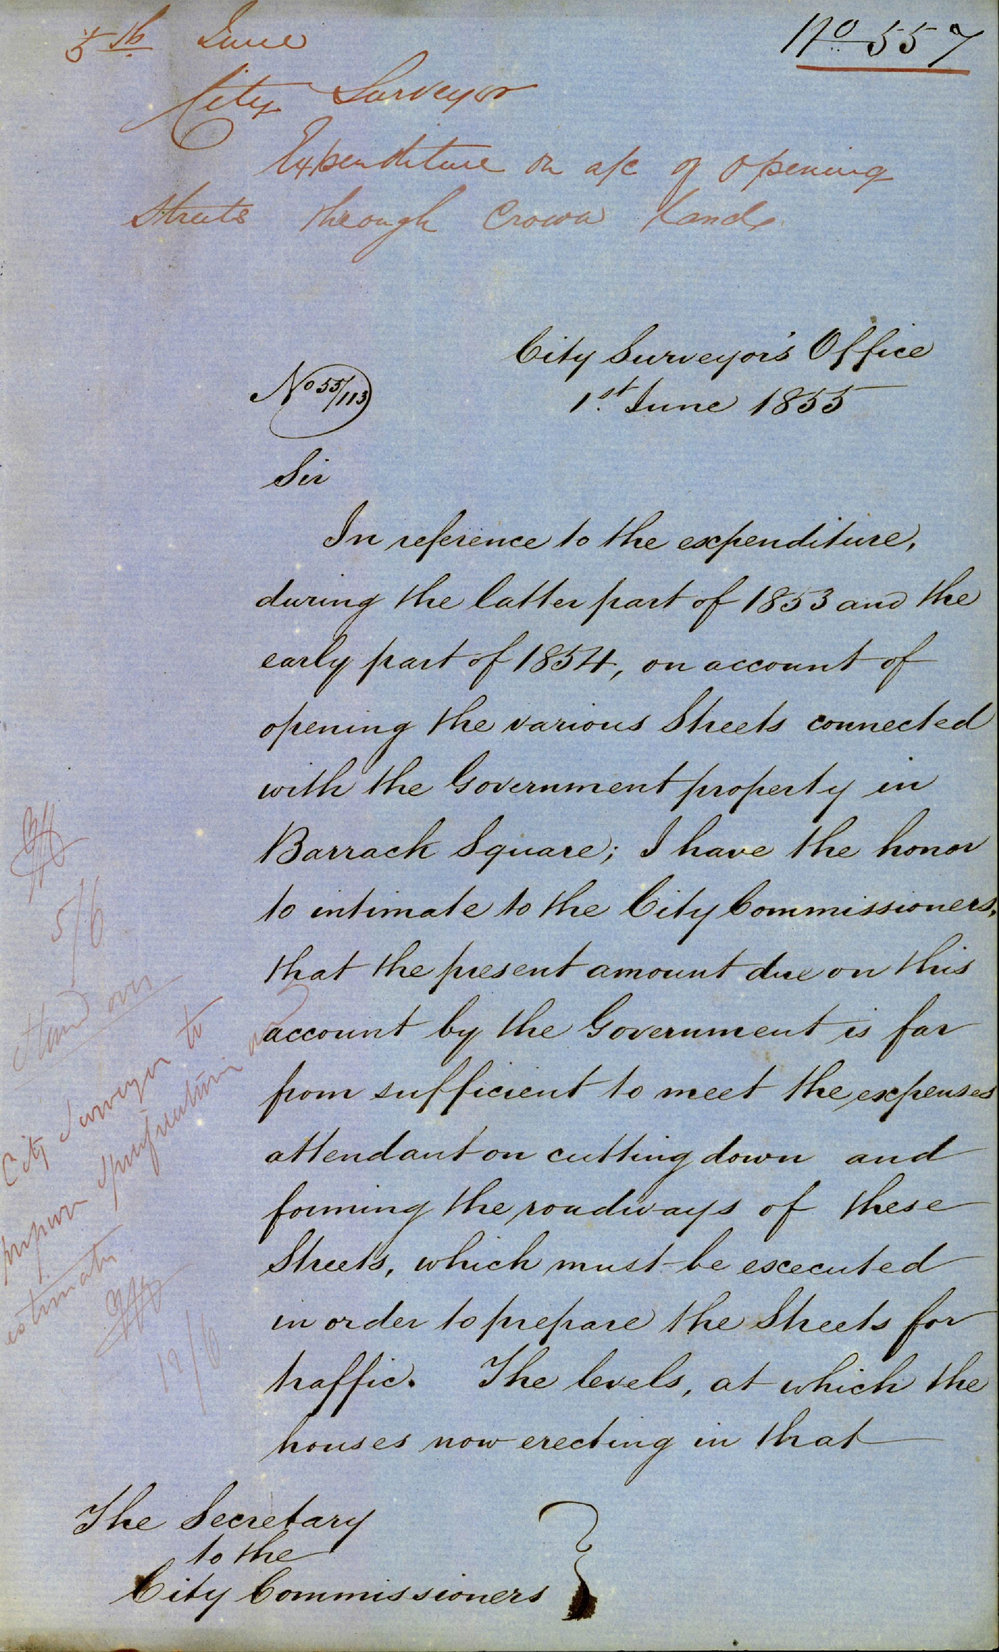 5th June
No 557
City Surveyor
Expenditure on a/c of opening
Streets through Crown Lands
City Surveyor's Office
No 55/113
1st June 1855
Sir
In reference to the expenditure,
during the latter part of 1853 and the
early part of 1854, on account of
opening the various Streets connected
with the Government property in
Barrack Square; I have the honor
to intimate to the City Commissioners,
that the present amount due on this
account by the Government is far
from sufficient to meet the expenses
attendant on cutting down and
forming the roadways of these
Streets, which must be executed
in order to prepare the Streets for
traffic. The levels, at which the
houses now erecting in that
5/6
Stand over
City Surveyor to
prepare specification and
estimate
12/6
The Secretary
to the
City Commissioners